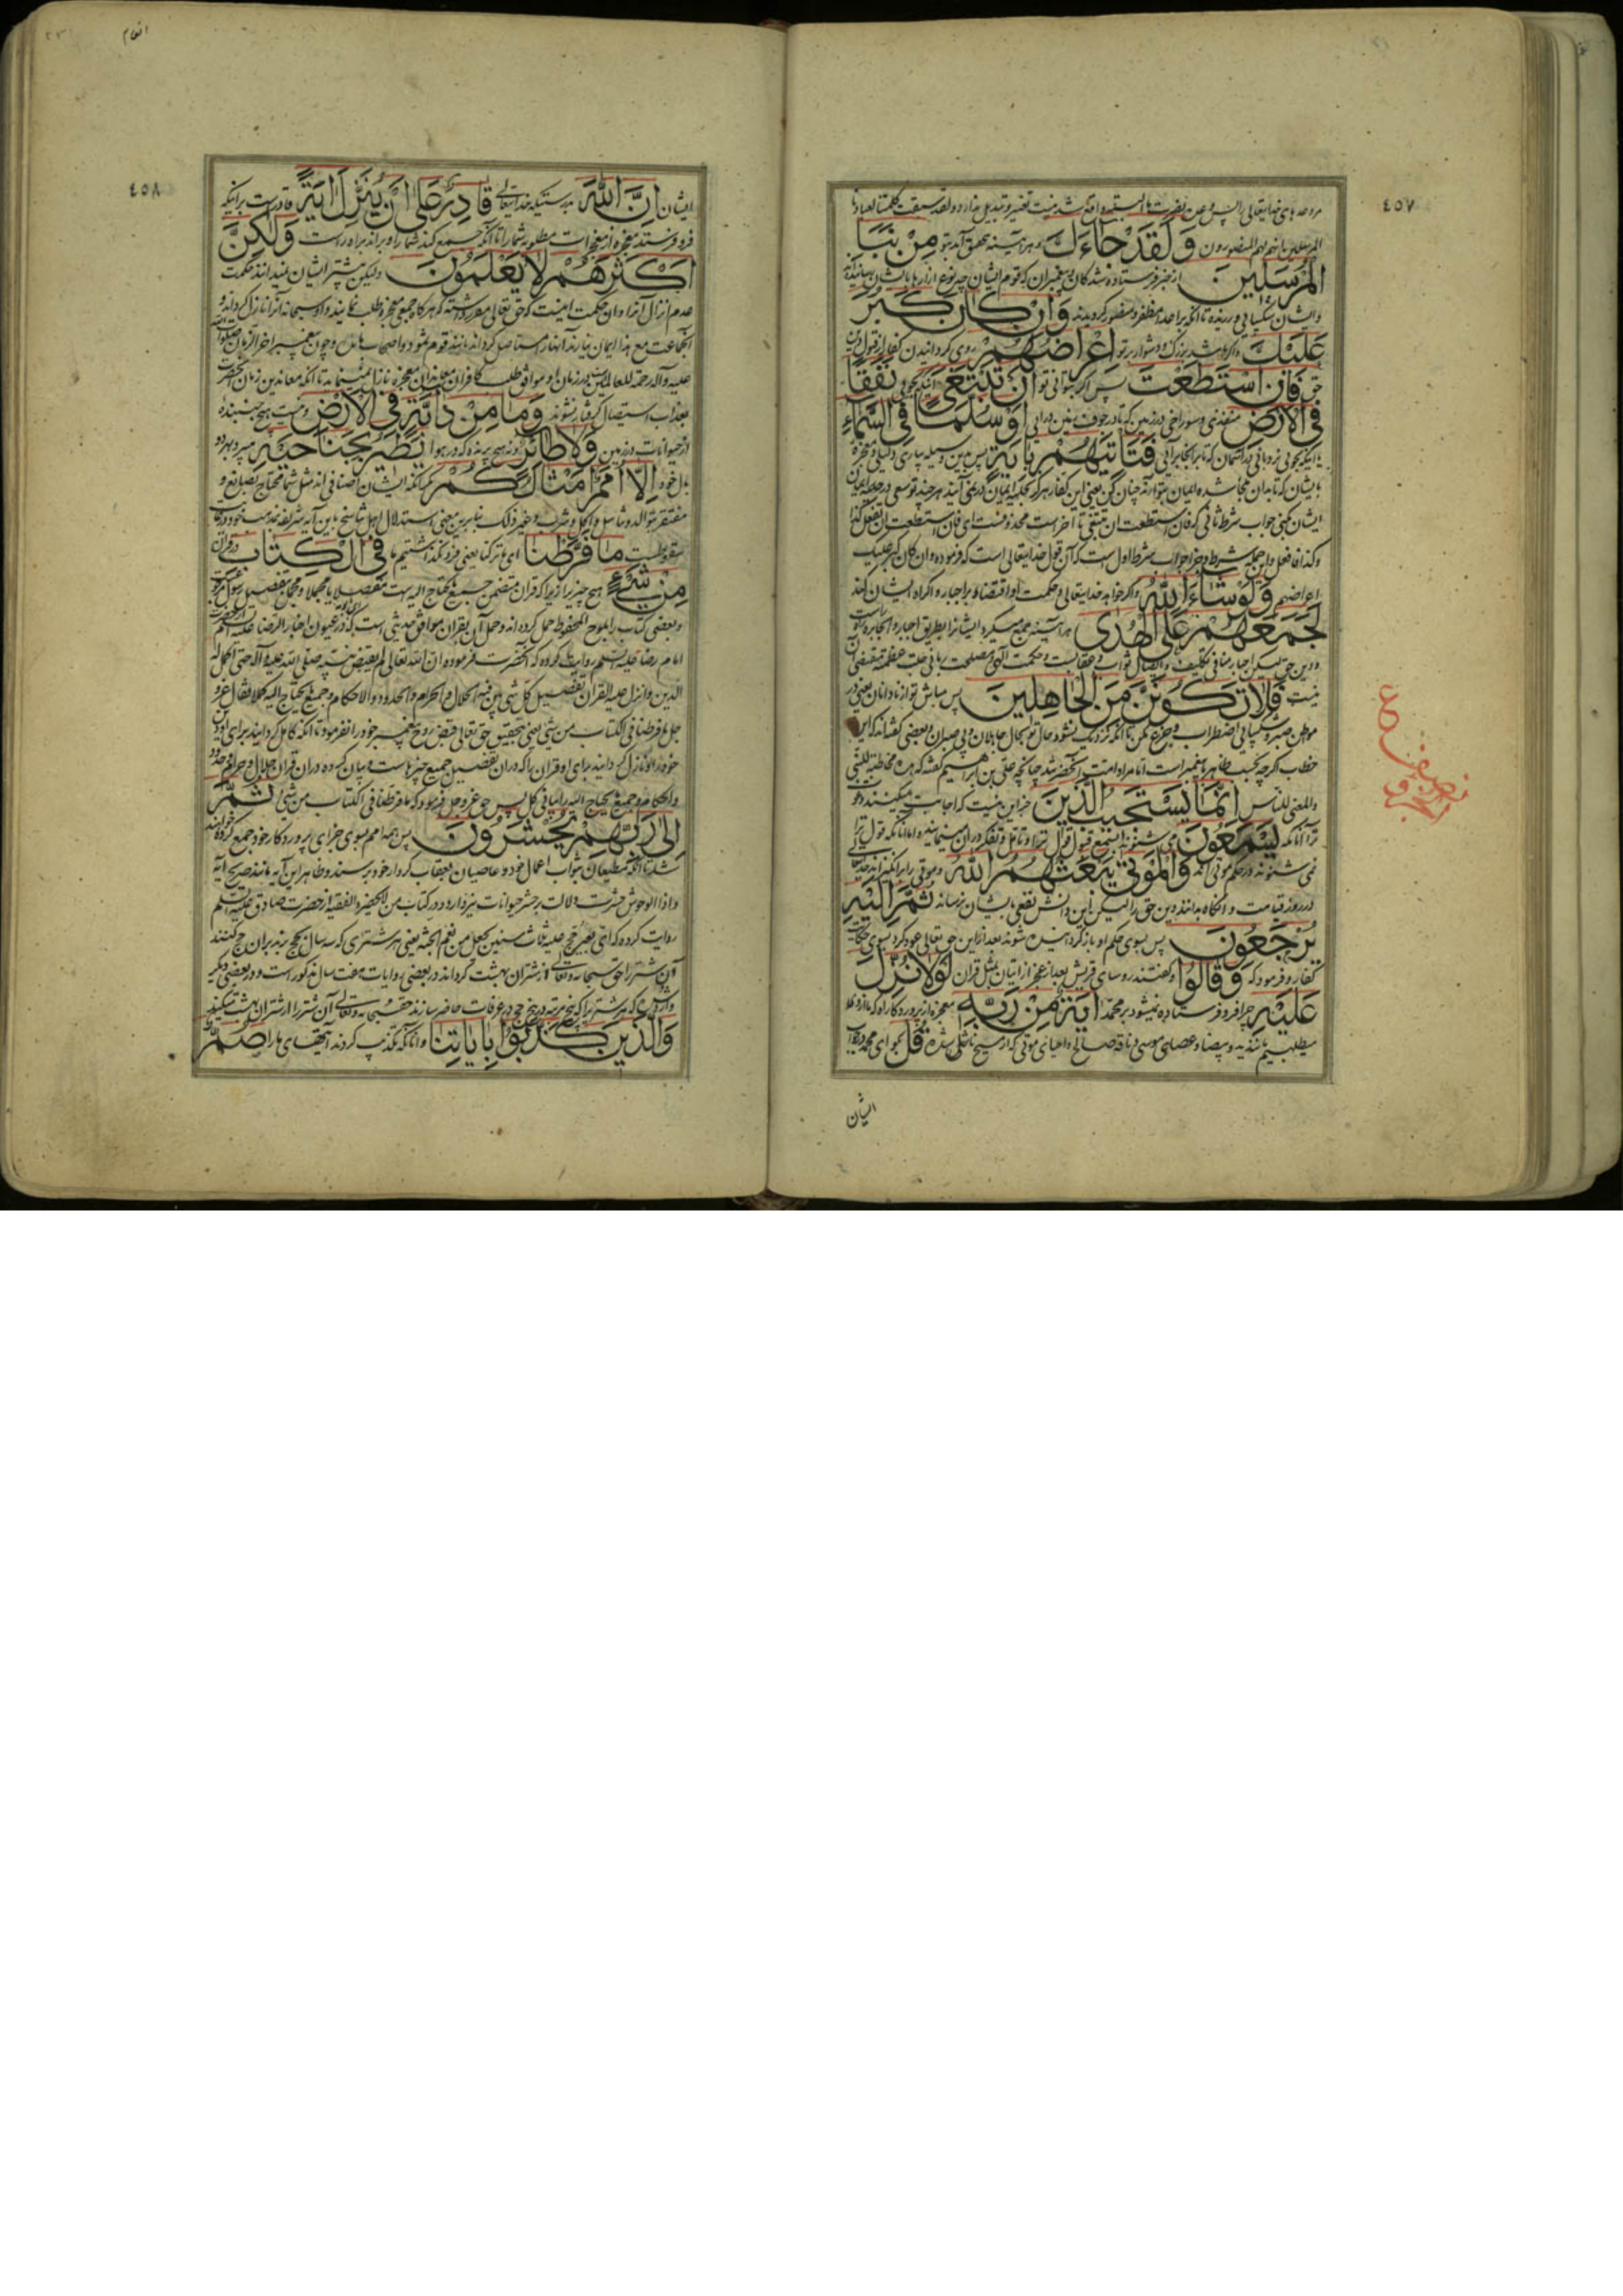 ٤٥٧
مر وعدهای خدایتعالی را پس وعده نصرت ما البته واقع شدنیست تغییر و تبدیل ندارد ولقد سبقت کلمتنا لعبادنا
المرسلین انهم لهم المنصورون وَلَقَدْ جَاءَكَ و هر آینه بتحقیق آمد بتو مِنْ نَبَإِ
الْمُرْسَلِينَ از خبر فرستاده شدگان و پیغمبران که قوم ایشان چه نوع آزارها بایشان رسانیدند
و ایشان شکیبائی ورزیدند تا آنکه بر اعدا مظفر و منصور گردیدند وَإِنْ كَانَ كَبُرَ
عَلَيْكَ و اگر باشد بزرگ و دشوار بر تو إِعْرَاضُهُمْ روی گردانیدن کفار از قبول دین
حق فَإِنِ اسْتَطَعْتَ پس اگر بتوانی تو أَنْ تَبْتَغِيَ آنکه بجوئی نَفَقًا
فِي الْأَرْضِ منفذی و سوراخی در زمین که تا در جوف زمین درائی أَوْ سُلَّمًا فِي السَّمَاءِ
یا اینکه بجوئی نردبانی در آسمان که تا بر آنجا برائی فَتَأْتِيَهُمْ بِآيَةٍ پس باین وسیله بیاری دلیلی و معجزه
بایشان که تا بدان ملجا شده ایمان بتو آرند چنان کن یعنی این کفار هرگز بحکم ایمان در نمی آیند هر چند توسعی در جلب ایمان
ایشان کنی جواب شرط ثانی که فان استطعت ان تبتغی تا آخر است محذوفست ای فان استطعت ان تفعل کذا
وکذا فافعل و این جمله شرط و جزا جواب شرط اول است که آن قول خدایتعالی است که فرموده وان کان کبر علیک
اعراضهم وَلَوْ شَاءَ اللَّهُ و اگر خواهد خدایتعالی و حکمت او اقتضا کند بر اجبار و اکراه ایشان کند
لَجَمَعَهُمْ عَلَى الْهُدَى هر آینه جمع میکرد ایشانرا بطریق اجبار و الجا بر راه راست
و دین حق لیکن اجبار منافی تکلیف و ایصال ثواب و عقابست و حکمت الهی و مصلحت ربانی جلت عظمته مقتضی آن
نیست فَلَا تَكُونَنَّ مِنَ الْجَاهِلِينَ پس مباش تو از نادانان یعنی در
موطن صبر و شکیبائی اضطراب و جزع مکن تا آنکه نزدیک نشود حال تو بحال جاهلان و بی صبران و بعضی گفته اند که این
خطاب اگر چه بحسب ظاهر با پیغمبر است اما مراد امت آنحضرتند چنانچه علی بن ابراهیم گفته که هذه مخاطبة للنبی
والمعنی للناس إِنَّمَا يَسْتَجِيبُ الَّذِينَ جز این نیست که اجابت میکنند دعوت
ترا آنانکه يَسْمَعُونَ می شنوند بسمع قبول قول ترا و تامل و تفکر در آن مینمایند و اما آنانکه قول ترا
نمی شنوند در حکم موتی اند وَالْمَوْتَى يَبْعَثُهُمُ اللَّهُ و موتی را برانگیزاند خدایتعالی
در روز قیامت و آنگاه بدانند دین حق را لیکن این دانش نفعی بایشان نرساند ثُمَّ إِلَيْهِ
يُرْجَعُونَ پس بسوی حکم او بازگردانیده شوند بعد از این حق تعالی عود کرد بسوی حکایت
کفار و فرمود که وَقَالُوا و گفتند روسای قریش بعد از عجز از اتیان بمثل قران لَوْلَا نُزِّلَ
عَلَيْهِ چرا فرو فرستاده نمیشود بر محمد آيَةٌ مِنْ رَبِّهِ معجزه از پروردگار او که ما از او
میطلبیم مانند ید بیضا و عصای موسی و ناقه صالح و احیای موتی که از مسیح ناشی شده قُلْ بگو ای محمد در جواب
ایشان
انعام
٤٥٨
ایشان إِنَّ اللَّهَ بدرستیکه خدایتعالی قَادِرٌ عَلَى أَنْ يُنَزِّلَ آيَةً قادرست بر اینکه
فرو فرستد معجزه از معجزات مطلوبه شما را تا آنکه جمع کند شما را و براند براه راست وَلَكِنَّ
أَكْثَرَهُمْ لَا يَعْلَمُونَ ولیکن بیشتر ایشان نمیدانند حکمت
عدم انزال آنرا و آن حکمت اینست که حق تعالی مقرر داشته که هرگاه جمعی معجزه طلب نمایند و او سبحانه آنرا نازل گرداند و
آنجماعت مع هذا ایمان نیارند آنها را مستاصل گرداند مانند قوم ثمود و اصحاب مائده و چون پیغمبر آخر الزمان صلوات الله
علیه و آله رحمة للعالمین است در زمان او موافق طلب کافران معاندان معجزه نازل نمینماید تا آنکه معاندین زمان آنحضرت
بعذاب استیصال گرفتار نشوند وَمَا مِنْ دَابَّةٍ فِي الْأَرْضِ و نیست هیچ جنبنده
از حیوانات در زمین وَلَا طَائِرٍ و نه هیچ پرنده که در هوا يَطِيرُ بِجَنَاحَيْهِ میپرد بهر دو
بال خود إِلَّا أُمَمٌ أَمْثَالُكُمْ مگر آنکه ایشان اصنافی اند مثل شما محتاج بصانع و
مفتقر بتوالد و تناسل و اکل و شرب و غیر ذلک بنابرین معنی استدلال اهل تناسخ باین آیه شریفه بمذهب خود درجه
سقوطست مَا فَرَّطْنَا ای ما ترکنا یعنی فرو نگذاشتیم ما فِي الْكِتَابِ در قران
مِنْ شَيْءٍ هیچ چیز را زیرا که قران متضمن جمیع محتاج الیه است مفصلا یا مجملا و مجمل بتفصیل رسول مبین گشت
و بعضی کتاب را بلوح المحفوظ حمل کرده اند و حمل آن بقران موافق حدیثی است که در عیون اخبار الرضا علیه السلم از حضرت
امام رضا علیه السلم روایت کرده که آنحضرت فرموده ان الله تعالی لم یقبض نبیه صلی الله علیه و آله حتی اکمل له
الدین و انزل علیه القران تفصیل کل شی بین فیه الحلال والحرام والحدود والاحکام و جمیع ما یحتاج الیه کملا فقال عز و
جل ما فرطنا فی الکتاب من شی یعنی بتحقیق حق تعالی قبض روح پیغمبر خود را نفرمود تا آنکه کامل گردانید برای او دین
خود را و نازل گردانید برای او قران را که در آن تفصیل جمیع چیزهاست و بیان کرده در آن قران حلال و حرام و حدود
و احکام و جمیع ما یحتاج الیه را بیانی کامل پس حق عز و جل فرمود که ما فرطنا فی الکتاب من شی ثُمَّ
إِلَى رَبِّهِمْ يُحْشَرُونَ پس همه امم بسوی جزای پروردگار خود جمع کرده خواهند
شد تا آنکه مطیعان بثواب اعمال خود و عاصیان بعقاب کردار خود برسند و ظاهر این آیه مانند صریح آیه
و اذا الوحوش حشرت دلالت بر حشر حیوانات نیز دارد و در کتاب من لا یحضره الفقیه از حضرت صادق علیه السلم
روایت کرده که ای بعیر حج علیه ثلاث سنین یجعل من نعم الجنة یعنی هر شتری که سه سال بحج روند بر آن حج کنند
آن شتر را حق سبحانه و تعالی از شتران بهشت گرداند و در بعضی روایات هفت سال مذکور است و در بعضی دیگر
وارد شده که هر شتر را که پنج مرتبه در پنج حج در عرفات حاضر سازند حقسبحانه و تعالی آن شتر را از شتران بهشت میکند
وَالَّذِينَ كَذَّبُوا بِآيَاتِنَا و آنانکه تکذیب کردند آیتهای ما را صُمٌّ